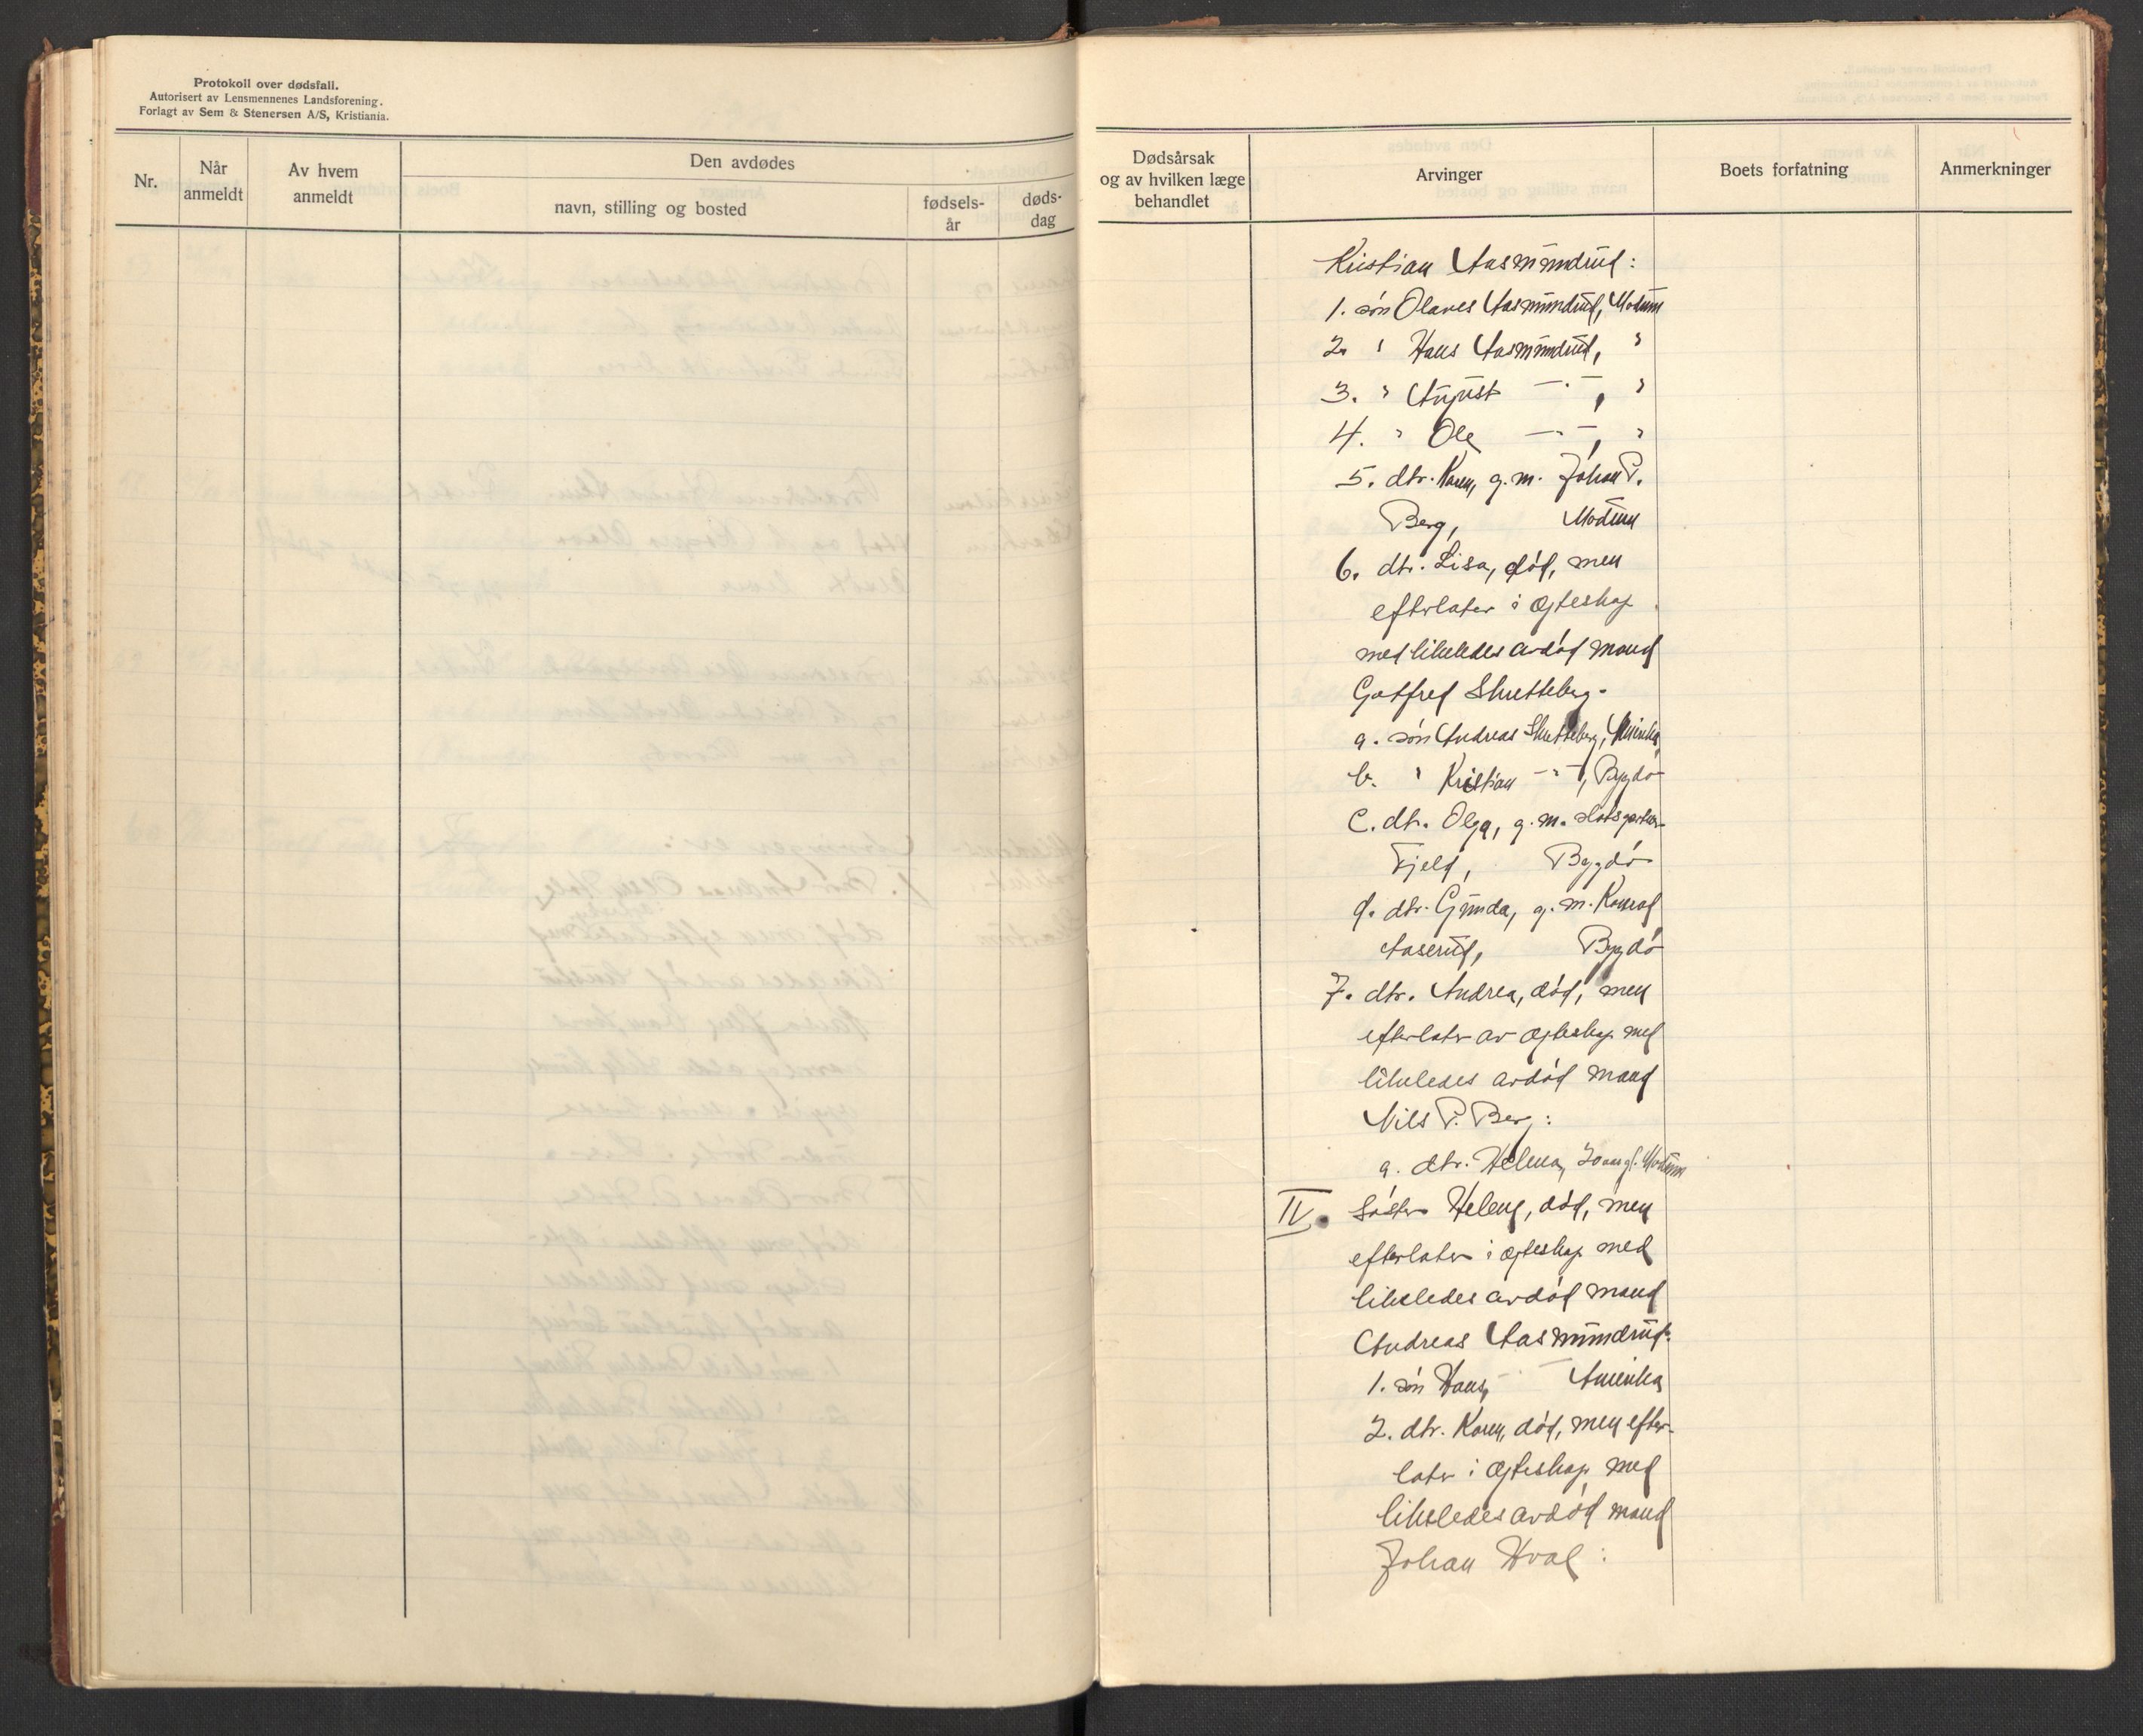 Protokoll over dødsfall.
Autorisert av Lensmennenes Landsforening.
Forlagt av Sem & Stenersen A/S, Kristiania.
Nr.
Når anmeldt
Av hvem anmeldt
Den avdødes
navn, stilling og bosted
fødsels-år
døds-dag
Dødsårsak og av hvilken læge behandlet
Arvinger
Boets forfatning
Anmerkninger
Kristian Aasmundrud:
1. søn Olaves Aasmundrud, Modum
2. " Hans Aasmundrud, "
3. " August —"—, "
4. " Ole —"—, "
5. dtr. Karen, g.m. Johan P.
Berg, Modum
6. dtr. Lisa, død, men
efterlater i ægteskap
med likeledes avdød mand
Gotfred Skretteberg.
a. søn Andreas Skretteberg, Amerika
b. " Kristian —"—, Bygdø
c. dtr. Olga, g.m. slotsgartner
Fjeld, Bygdø
d. dtr. Gunda, g.m. Konrad
Aaserud, Bygdø
7. dtr. Andrea, død, men
efterlater av ægteskap med
likeledes avdød mand
Nils P. Berg:
a. dtr. Helma, 20 aar gl. Modum
IV. Søster Helene, død, men
efterlater i ægteskap med
likeledes avdød mand
Andreas Aasmundrud:
1. søn Hans, Amerika
2. dtr. Karen, død, men efter-
later i ægteskap med
likeledes avdød mand
Johan Hval: